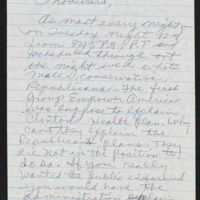 Producers,
As most every night
on Tuesday night 12th
from 8
P.M. P.T. and
through out
the night well
male, conservative,
Republicans. The first
Group, Empower America
was
to explain
Clinton Health Plan. Why
can't they explain the
Republicans plans. They
are not in the position to
do so. If you really
wanted the public informed
you would have the
administration explain